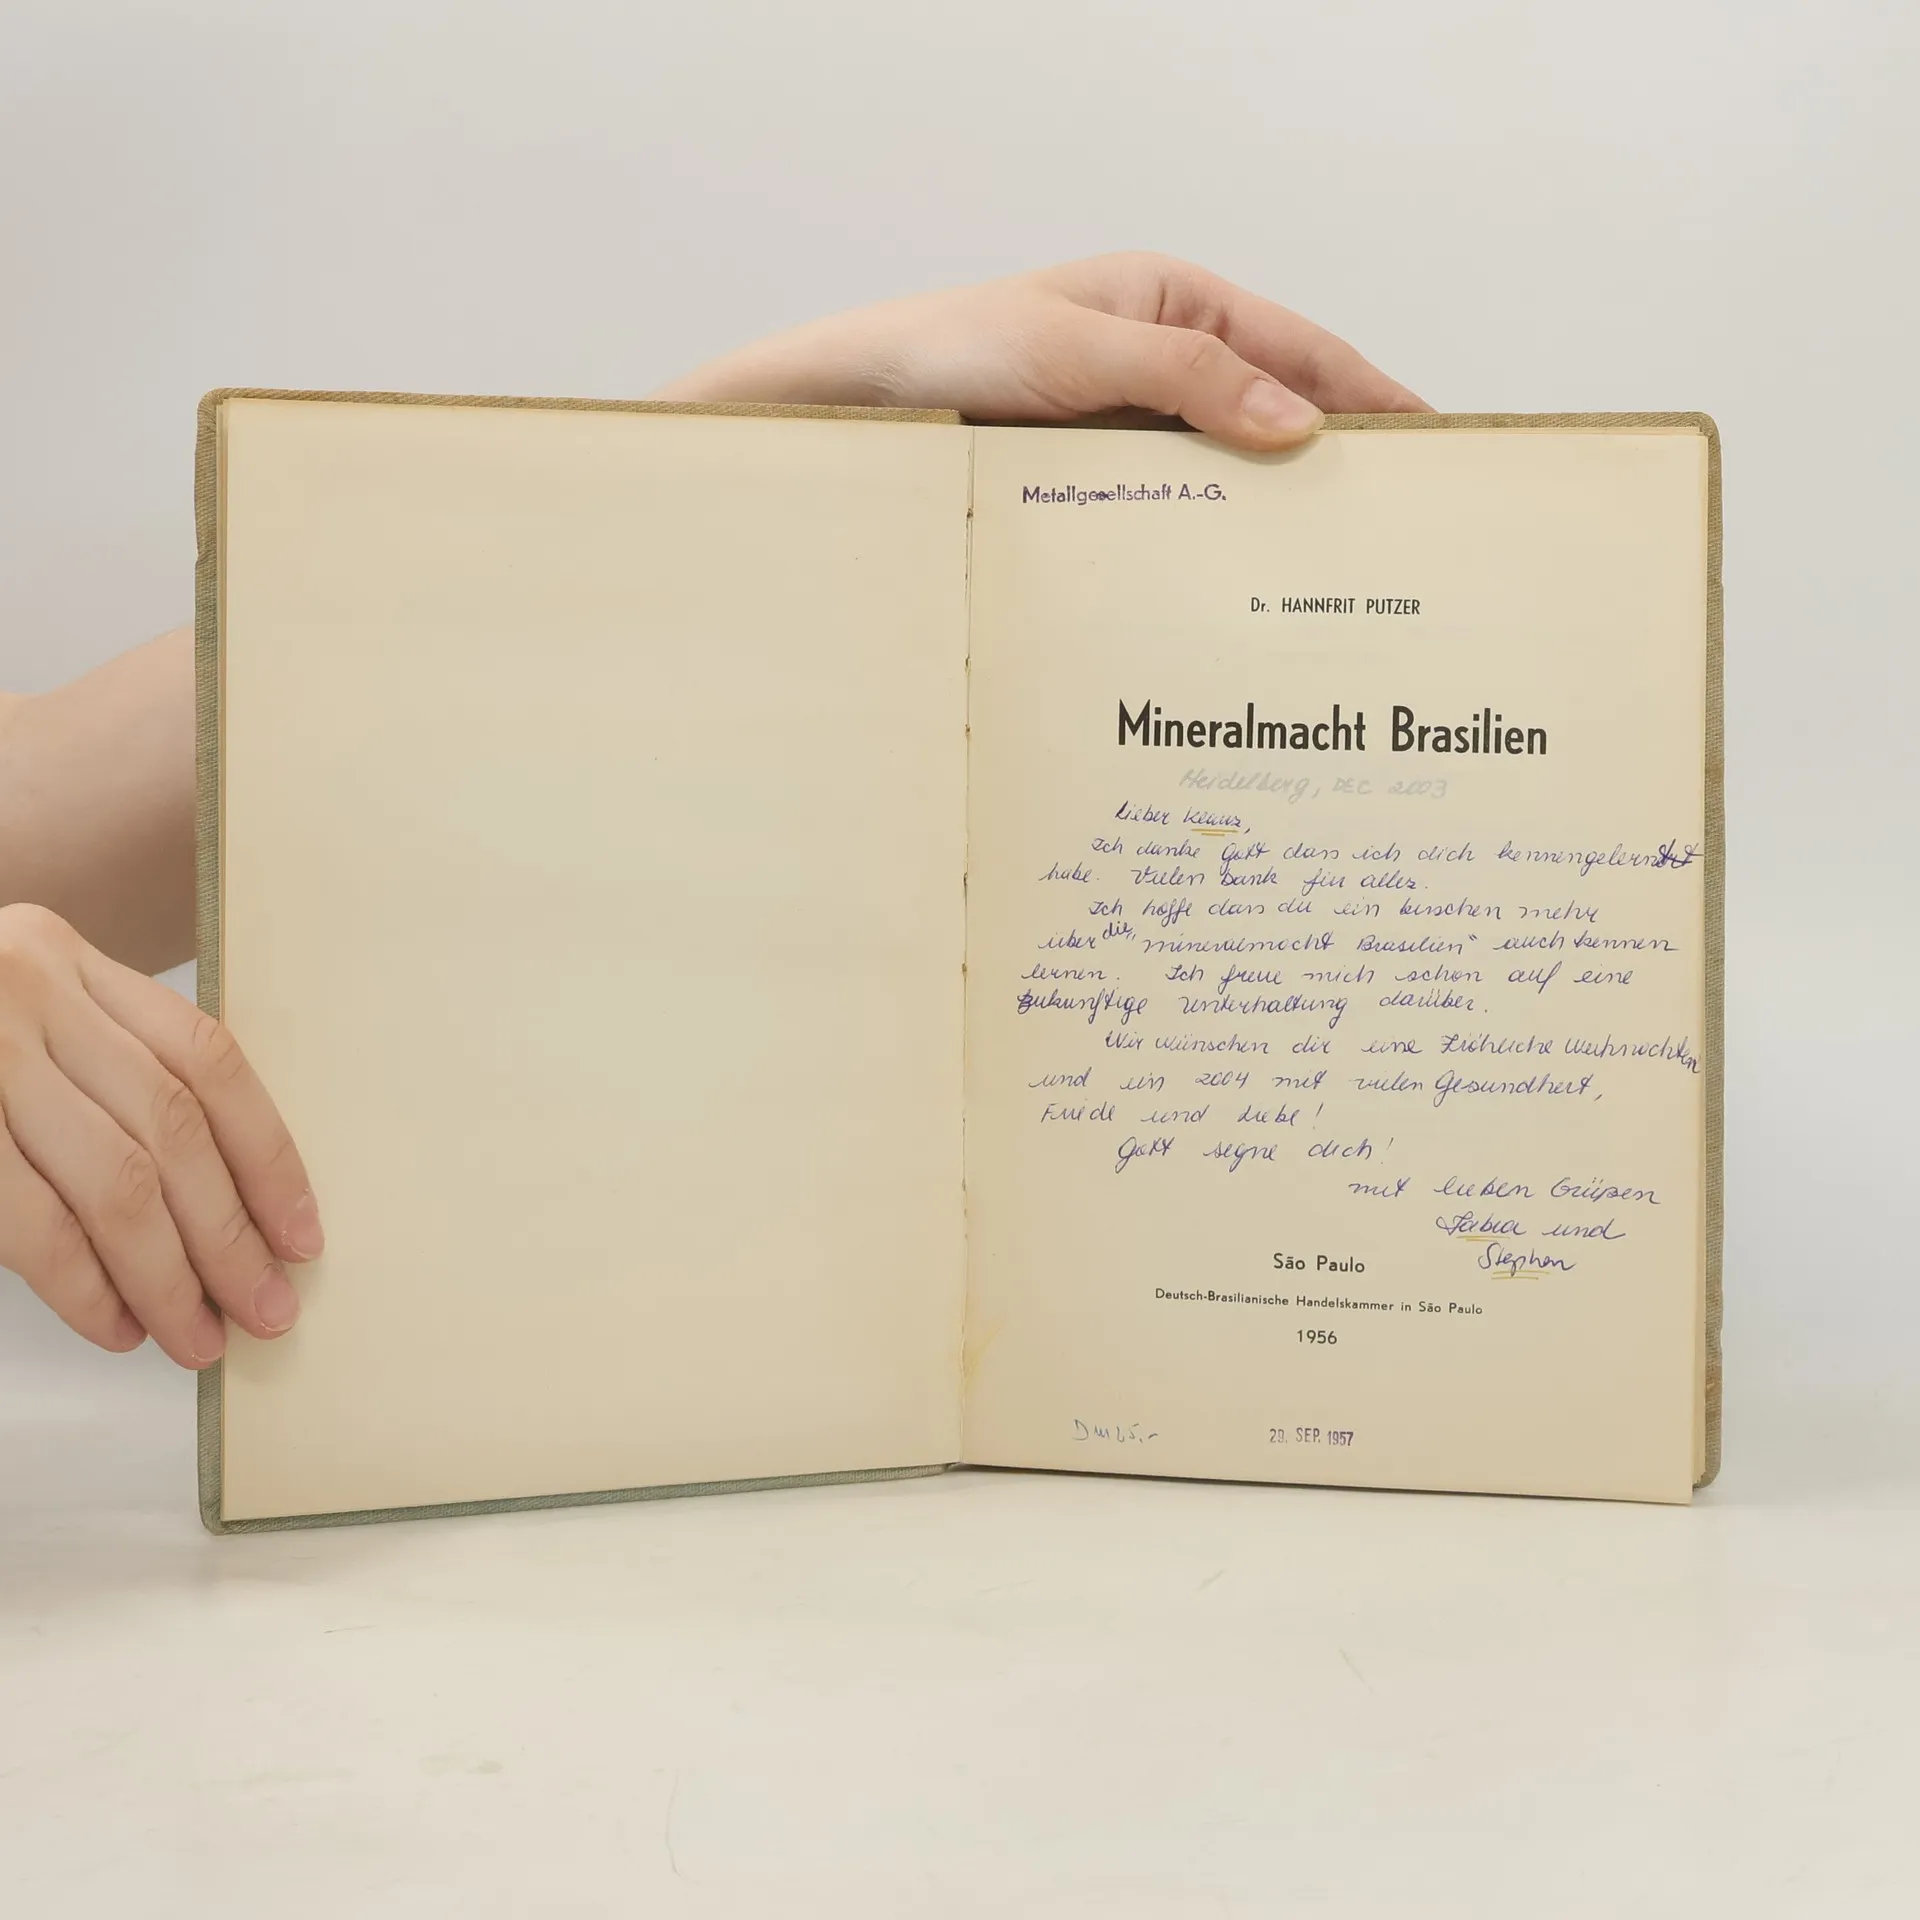 Metallgesellschaft A.-G.
Dr. HANNFRIT PUTZER
Mineralmacht Brasilien
Heidelberg, DEC 2003
Lieber Klaus,
Ich danke Gott dass ich dich kennengelernt
habe. Vielen Dank für alles.
Ich hoffe dass du ein bisschen mehr
über die „mineralmacht Brasilien“ auch kennen
lernen. Ich freue mich schon auf eine
zukunftige Unterhaltung darüber.
Wir wünschen dir eine Fröhliche Weihnachten
und ein 2004 mit vielen Gesundheit,
Friede und Liebe!
Gott segne dich!
mit lieben Grüßen
Fabia und
Stephan
São Paulo
Deutsch-Brasilianische Handelskammer in São Paulo
1956
29. SEP. 1957